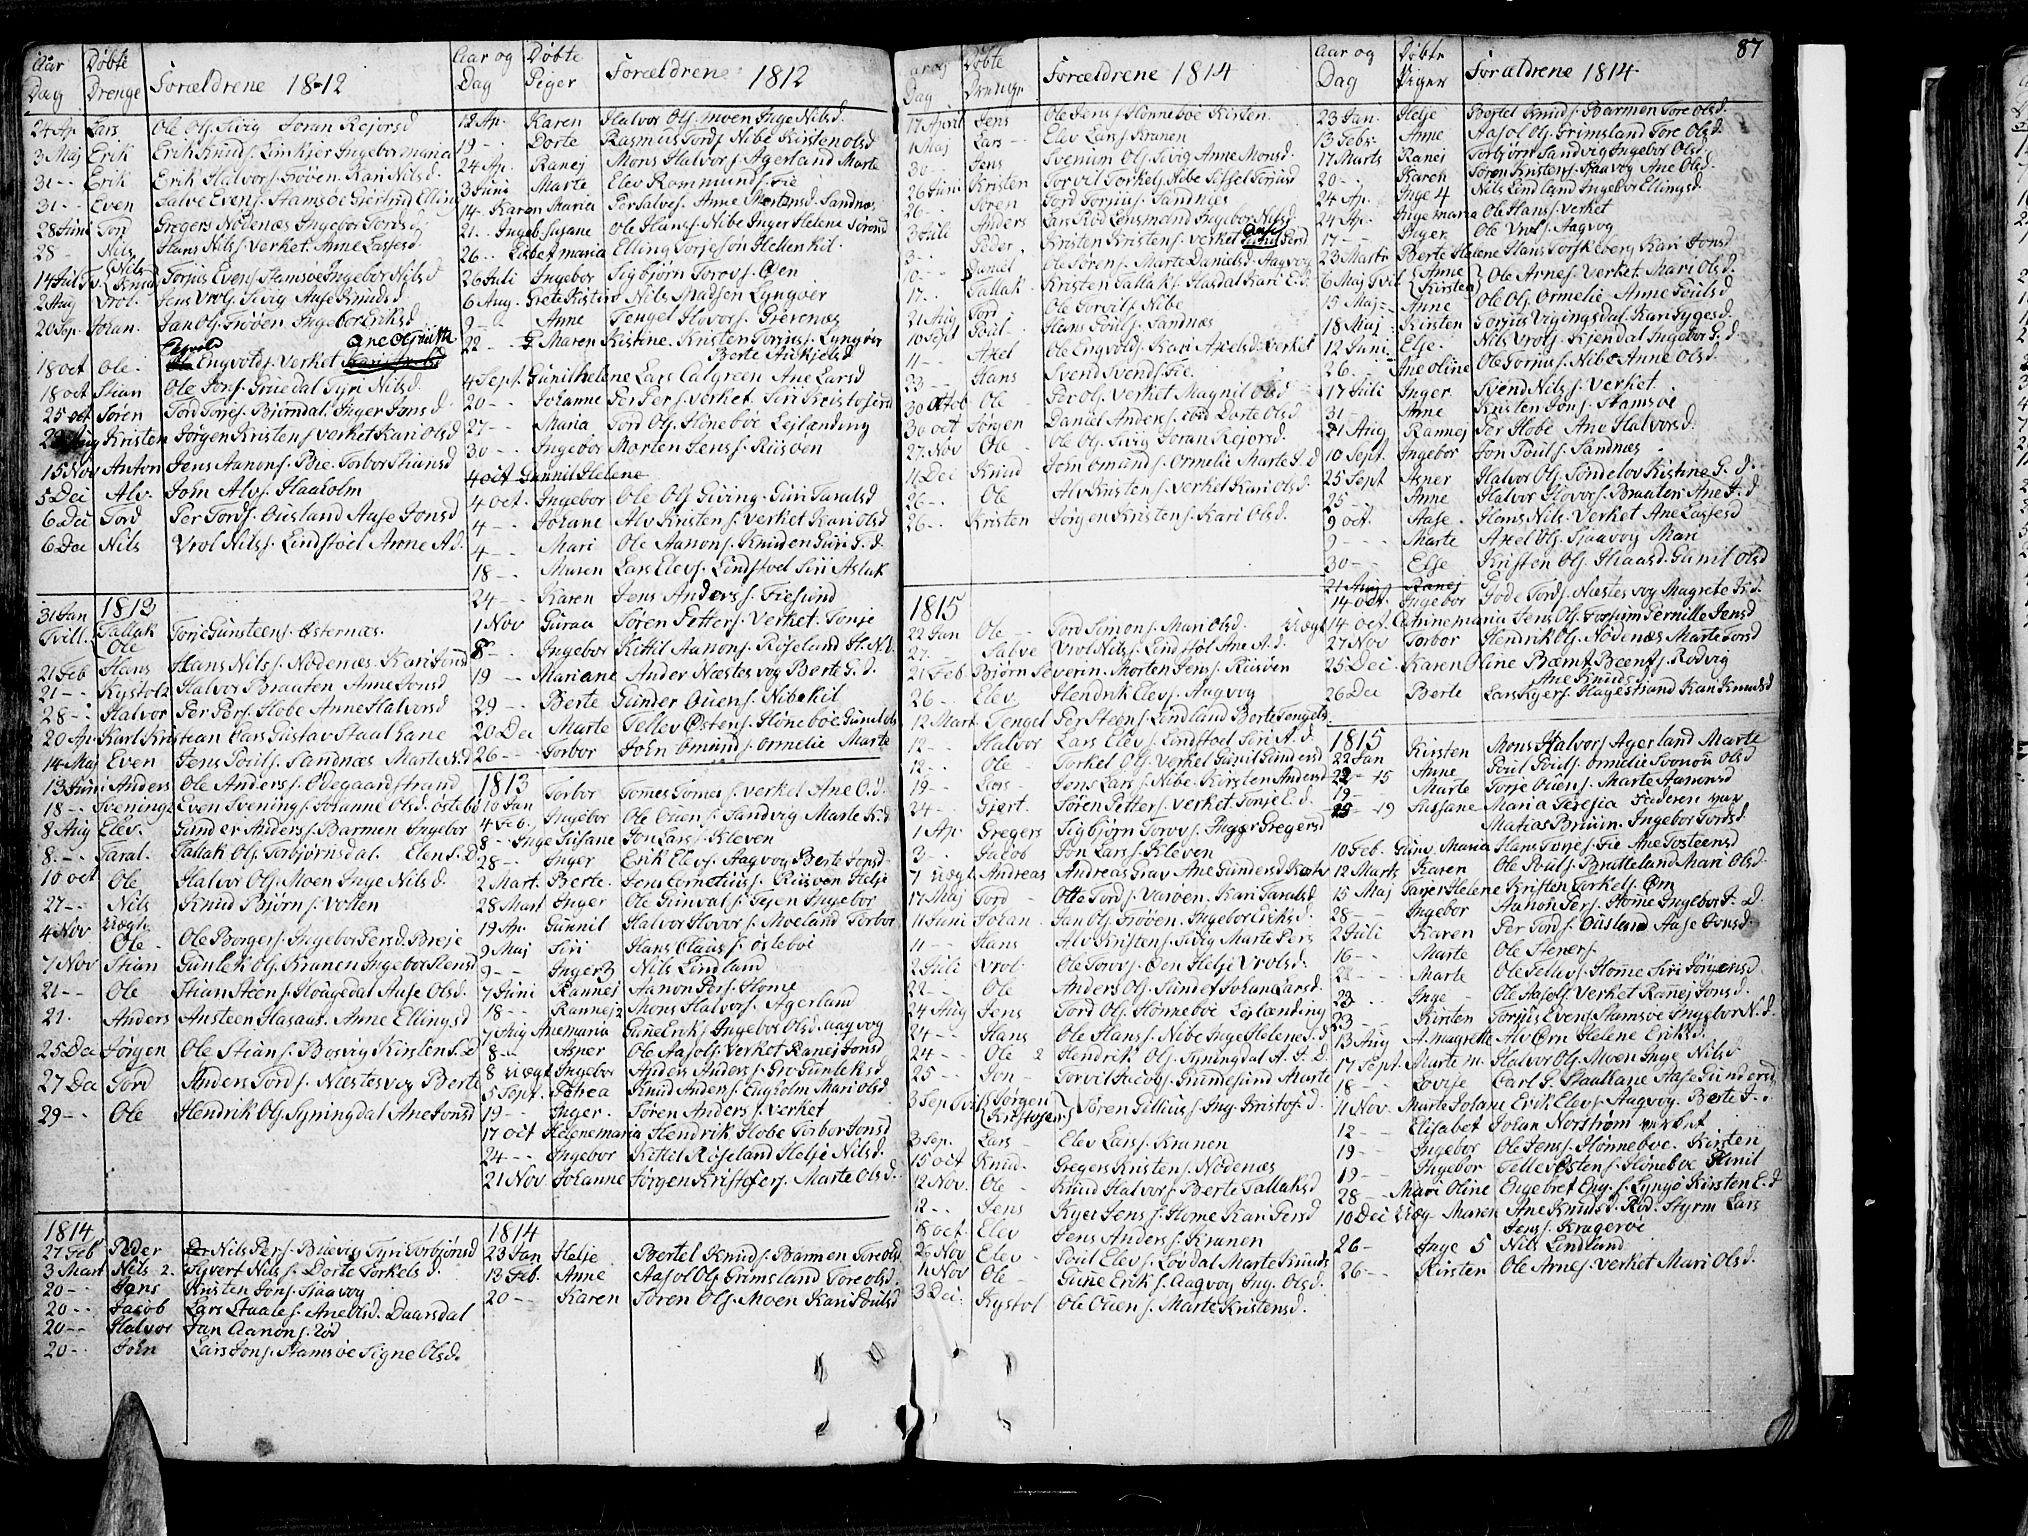 Aar Dag Døbte Drenge Forældrene 1812
24 Ap. Lars Ole Ols. Sivig Joran Rejorsd
3 Maj Erik Erik Knuds. Limkjer Ingebor maria
31 - - Erik Erik Halvors. Frøen. Kari Nilsd.
31 - - Even Salve Evens. Stamsøe Giertrud Elling
28 Juni Tord Gregers Nødenæs Ingebor Tords d
28 - Nils Hans Nils s. Verket. Anne Lassesd.
14 Juli Tv. Nils Knud Torjus Evens. Stamsøe Ingebor Nilsd
2 Aug Vrol. Jens Vrols. Sivig Aase Knudsd
20 Sep. Johan. Jan Ols. Frøen. Ingebor Eriksd.
18 oct Ole. Engvolds. Verket
18 oct Stian Ole Jons. Gruedal Tyri Nilsd.
25 oct Søren Tord Torjes. Bjørndal. Inger Jons d.
Aug Kristen Jørgen Kristens Verket Kari Olsd
15 Nov Anton Jens Aanons. Bie. Torbor Stiansd
5 Dec Alv. John Alvs. Haaholm
6 Dec Tord Per Tords. Ousland Aase Jonsd
6 Dec Nils Vrol Nilss. Lindstøel Anne A. d.
1813
31 Jan Tvill. Tallak Ole Torje Gunsteens. Østernæs.
21 Feb Hans Hans Nils s. Nødenæs. Kari Jonsd
21 - - Kystol 2 Halvor Brauten Anne Jonsd
28 - - Halvor Per Pers. Hobe Anne Halvorsd
20 Ap. Karl Kristian Lars Gustav Staalhane
14 Maj Even Jens Pouls. Sandnæs Marte N. d
13 Juni Anders Ole Anders s. Ødegaardstrand
18 - - Svenings Even Svenings. Johanne Olsd. Østebø
8 Aug Elev. Gunder Anders s. Barmen Ingebor
8. - - Taral. Tallak Ols. Torbjørnsdal. Elen S. D
10 oct Ole Halvor Ols. Moen Inge Nils d.
27 - - Nils Knud Bjørn s. Vosten
4 Nov Uægte Ole - Ole Borgers. Ingebor Pers d. Breje
7 Nov Stian Gunlek Ols. Kranen Ingebor Stensd
21 - - Ole Stian Steen s. Skougedal Aase Olsd.
21. Anders Ansteen Hasaas. Anne Ellings d
25 Dec Jørgen Ole Stian s. Bosvig Kirsten S. D
27 Dec Tord Anders Tord s. Næstesvog Berte
29 - - Ole Hendrik Ols. Syningdal Ane Jonsd
1814
27 Feb Peder Nils Pers. Buevig Tyri Torbjørnsd
3 Mart Nils 2. Syvert Nils s. Dorte Torkels d.
20 - - Jens Kristen Jons. Sjaavog
20 - - Jacob Lars Staales. Ane Olsd. Daarsdal
20 - - Halvor Jan Aanons. Rød
20 - - John Lars Jons. Stamsøe Signe Olsd.
Aar og Dag Døbte Piger Forældrene 1812
12 Ap. Karen Halvor Ols. Moen Inge Nilsd.
19 - Dorte Rasmus Tords Nibe Kirsten olsd
24 Ap. Ranej Mons Halvor s. Agerland Marte
3 Juni Marte Elev Rommunds. Fie
14 - Karen Maria Per Salves. Anne Mortensd. Sandnæs
21. - Ingeb Susane Ole Hans s. Nibe Inger Helene Sørensd
26 - - Lisbet maria Elling Torjesøn Hellenkil.
26 Juli Ingebor Sigbjørn Torovs. Øen
6 Aug. Grete Kistine Nils Madsen Lyngøer
9 - - Anne Tengel Hovors. Gjevenæs
22 - - G Maren Kistine. Kristen Torjuss. Lyngøer
Berte Aickjelsd
4 Sept. Gunil helene Lars Calgreen Ane Larsd
20 - - Johanne Per Per s. Verket. Siri Kristofersd
27 - - Maria Tord Ols. Hønebøe Lejlænding
30 - - Ingebor Morten Jens s. Riisøen
4 oct Gunnil Helene
4 oct. Ingebor Ole Ols. Giving. Guri Taralsd
4 - - Johane Alv Kristen s. Verket Kari Olsd
4 - - Mari Ole Aanons. Knuden Guri S. d.
18 - - Maren Lars Elevs. Lindstøel Siri Aslak
24 - - Karen Jens Anders s. Fiesund
1 Nov Guraa Søren Petters. Verket. Tonje
8 - - Ingebor Kittil Aanons. Røseland H. N. d.
19 - - Mariane Ander Næstesvog Berte G. d.
29 - - Berte Gunder Ouens. Nibekil
20 Dec Marte Tellev Østens. Hønebøe Gunil ols
26 - - Torbor John Omunds. Ormelie Marte
1813
10 Jan Torbor Tomes Tomes s. Verket Ane O. d.
4 Feb. Ingebor Ole Ouens. Sandvig Marte K. d
8 - Inge Susane Jon Lars s. Kleven
28 - - Inger Erik Elevs. Aagvog Berte Jonsd.
2 Mart. Berte. Jens Cornelius s. Riisøen Helje
28 Mart Inger Ole Gunval s. Gejen Ingebor
19 Ap. Gunnil Halvor Hovor s. Moeland Torbor
9 Maj Siri Hans Claus s. Østebøe
9 - - Inger 3 Nils Lindland
7 Juni Rannej Aanon Pers. Home
18 - - Rannej 2 Mons Halvors. Agerland
7 Aug Ane maria Gune Eriks Ingebor Olsd. aagvog
8 - - Asner Ole Aasols. Verket Ranej Jonsd
8 Uægt Ingebor Anders Anders s. Gro Gunleksd
5 Sept. Petrea Knud Anders s. Engholm Mari Olsd
19 - - Inger. Søren Anders s. Verket
17 oct Helene maria Hendrik Hobe Torbor Jonsd
24 - - Ingebor Kittil Røseland Helje Nilsd.
21 Nov Johanne Jørgen Kristofers. Marte Olsd.
1814
23 Jan Helje Bertel Knud s. Barmen Tore Olsd
13 Feb. Anne Aasol Ols. Grimsland Tore olsd.
20 - - Karen Søren Ols. Moen Kari Poulsd
Aar og Dag Døbte Drenge Forældrene 1814
17 April Jens Ole Jens s. Hønnebøe Kirsten.
1 Maj Lars - - Elev Lars s. Kranen
30 - - Jens Svenum Ols. Sivig Anne Monsd.
26 Juni Kristen Torvil Torkels. Nibe Sissel Torjusd
26 - - Søren Tord Torjus s. Sandnæs
3 Juli Anders Lars Rød Lensmand Ingebor Nilsd.
3 - - Peder Kristen Kristens. Verket
Daniel Ole Sørens. Marte Danielsd. Aagvog
17. Tallak Kristen Tallak s. Hasdal Kari E. d.
21 Aug Tord Ole Torvils. Nibe
10 Sept Poul - Hans Pouls. Sandnæs
11 - - Axel Ole Engvolds. Kari Axelsd. Verket
23 - - Hans Svend Svends. Fie
30 Octob Ole - Pev Ols. Verket Magnil Olsd
30 oct Jørgen Daniel Anders s. Dorte Olsd.
27. Nov Ole - Ole Ols. Sivig Joran Rejorsd.
4 Dec Knud Jon Omund s. Ormelie Marte S. d
26 - - Ole Alv Kristens. Verket Kari Olsd.
26 - - Kristen Jørgen Kristens s. Kari Olsd.
1815
22 Jan Ole - Tord Simons s. Mari Olsd. Uægt
27. Salve Vrol Nils s. Lindstøl Ane A. d.
21 Feb. Bjørn Severin Morten Jens s. Riisøen
26 - Elev Hendrik Elevs. Aagvog
12 Mart. Tengel Per Steens. Lindland Berte Tengels
12 - - Halvor Lars Elev s. Lindstøel Siri A. d.
12 - - Ole - Torkel Ols. Verket Gunil Gundersd
19 - - Lars - Jens Lars s. Nibe. Kirsten Andersd
24 - - Gjert. Søren Petters. Verket. Tonje E. d.
1 Ap. Gregers Sigbjørn Torovs. Inger Gregersd
3 - - Jacob Jon Lars s. Kleven
7 Uægt Andreas Andreas Grav Ane Gunders d
17 Maj Tord - Otto Tord s. Varøen. Kari Taralsd.
11 Juni Johan Jan Ols. Frøen. Ingebor Eriksd.
11 - - Hans Alv Kristens. Sivig Marte Pers
2 Juli Vrol Ole Torovs. Øen Helje Vrolsd.
22 - - Ole Anders Ols. Sundet Johane Larsd.
24 Aug Jens Tord Ols. Hønnebøe Lejlænding
24 - - Hans Ole Hans s. Nibe Inge Helene S. d
24 - - Ole 2 Hendrik Ols. Syningdal A. J. D.
25 - - Jon - Torvil Jacobs. Grundesund Marte
3 Sep Tvil Jørgen Kristofer Søren Gillius s. Ing. Kristof. d.
3 Sep. Lars - Elev Lars s. Kranen
15 oct Knud - Gregers Knstens. Nødenæs
12 Nov. Ole - Knud Halvors. Berte Tallaksd
12 - - Jens Kyer Jens s. Home Kari Persd
18 oct. Elev Jens Anders s. Kranen
Nov Elev - Poul Elevs. Løvdal Marte Knuds
Nov Ole - Gune Eriks. Aagvog Ing. Olsd.
3 Dec. Kystol Ole Ouen s. Marte Kristensd.
87
Aar og Dag Døbte Piger Forældrene 1814.
23 Jan. Helje Bertel Knud s. Barmen Tore Olsd.
13 Febr. Anne Aasol Ols. Grimsland Tore Olsd.
17 Marts Ranej Torbjørn Sandvig Ingebor Olsd.
20 - - Karen Søren Kristens. Sjaavog Ane Olsd.
24 Ap. Inge 4 Nils Lindland Ingebor Ellingsd
24 Ap. Inge maria Ole Hans s. Verket
17 - - Inger Ole Vrols. Aagvog
23 Marts Berte Halene Hans Torskeberg Kari Jonsd
6 Maj Tvil Anne Kirsten Ole Arnes. Verket. Mari Olsd.
15 Maj - - Anne Ole Ols. Ormelie Anne Poulsd
18 Maj. Kirsten Torjus Vigingsdal Kari Tygesd.
12 Juni Else. Nils Vrols. Kjendal Ingebor G. d
26. - - Ane oline Ole Torjus s. Nibe Anne Olsd.
17 Juli Inger Svend Nils s. Verket.
31 - - Anne Kristen Jons. Stamsøe
21 Aug Rannej Per Hobe Ane Halvorsd.
10 Sept. Ingebor Jon Pouls. Sandnæs
25 Sept Asner Halvor Ols. Søndeløv Kistine G. d.
25 - - Anne Halvor Hovors. Brauten Ane J. d
9 oct. Aase. Hans Nils. Verket Ane Lassesd
9 - - - Marte Axel Ols. Sjaavog Mari
30 - - Else Kristen Ols. Haasd. Gunil Olsd
21 Aug Ranej
14 oct. Ingebor Gode Tords. Næstesvog Magrete K. d.
14 oct. Catrinemaria Jens Ols. Fossum Pernille Jensd
27 Nov Torbor Hendrik Ols. Nødenæs Marte Tordsd
25 Dec. Karen Oline Bernt Beents. Rødvig
Ane Knuds.
26 Dec Berte Lars Kyers. Hagestrand Kari Knudsd
1815
22 Jan Kirsten Mons Halvors Agerland Marte
22 - 15 Anne Poul Pouls. Ormelie Svonou Olsd
19 - Marte Torje Ouens. Marte Aanonsd
19 Susane Maria Teresia Faderen var
Matias Bruun. Ingebor Tordsd.
10 Feb. Gune Maria Hans Torjes. Fie Ane Torsteensd.
12 Marts Karen Ole Pouls. Bratteland Mari Olsd.
15 Maj Helene Kristen Torkels. Øm
28 - - Ingebor Aanon Pers. Home Ingebor J. D.
2 Juli Karen Per Tords. Ousland Aase Jonsd.
16 - - Marte Ole Steners.
- - Marte Ole Tellevs. Home Siri Jørgensd.
23 - - Inge - Ole Aasols. Verket Rannej Jonsd.
23 - - Kirsten Torjus Evens. Stamsøe Ingebor N. d.
13 Aug A. Magrette Alv Ørn Helene Eriksd.
17 Sept. Marte m. Halvor Ols. Moen Inge Nilsd.
18 - - Lovise Carl G. Staalhane Aase Gundersd
11 Nov. Marte Johane Erik Elevs. Aagvog. Berte J.
12 - - Elisabet Johan Norstrøm Verket
19 - - Ingebor Ole Jens s. Hønneboe. Kirsten
19 - - Ingebor Tellev Østens. Høneboe Gunil
28 - - Mari Oline Engebret Eng. s. Lyngø Kirsten E. d
10 Dec Uæg - Maren Ane Knuds D. Rød. Styrm Lars
Jens s. Kragerøe
26 - Inge 5 Nils Lindland
26 - - Kirsten Ole Arnes. Verket Mari Olsd.